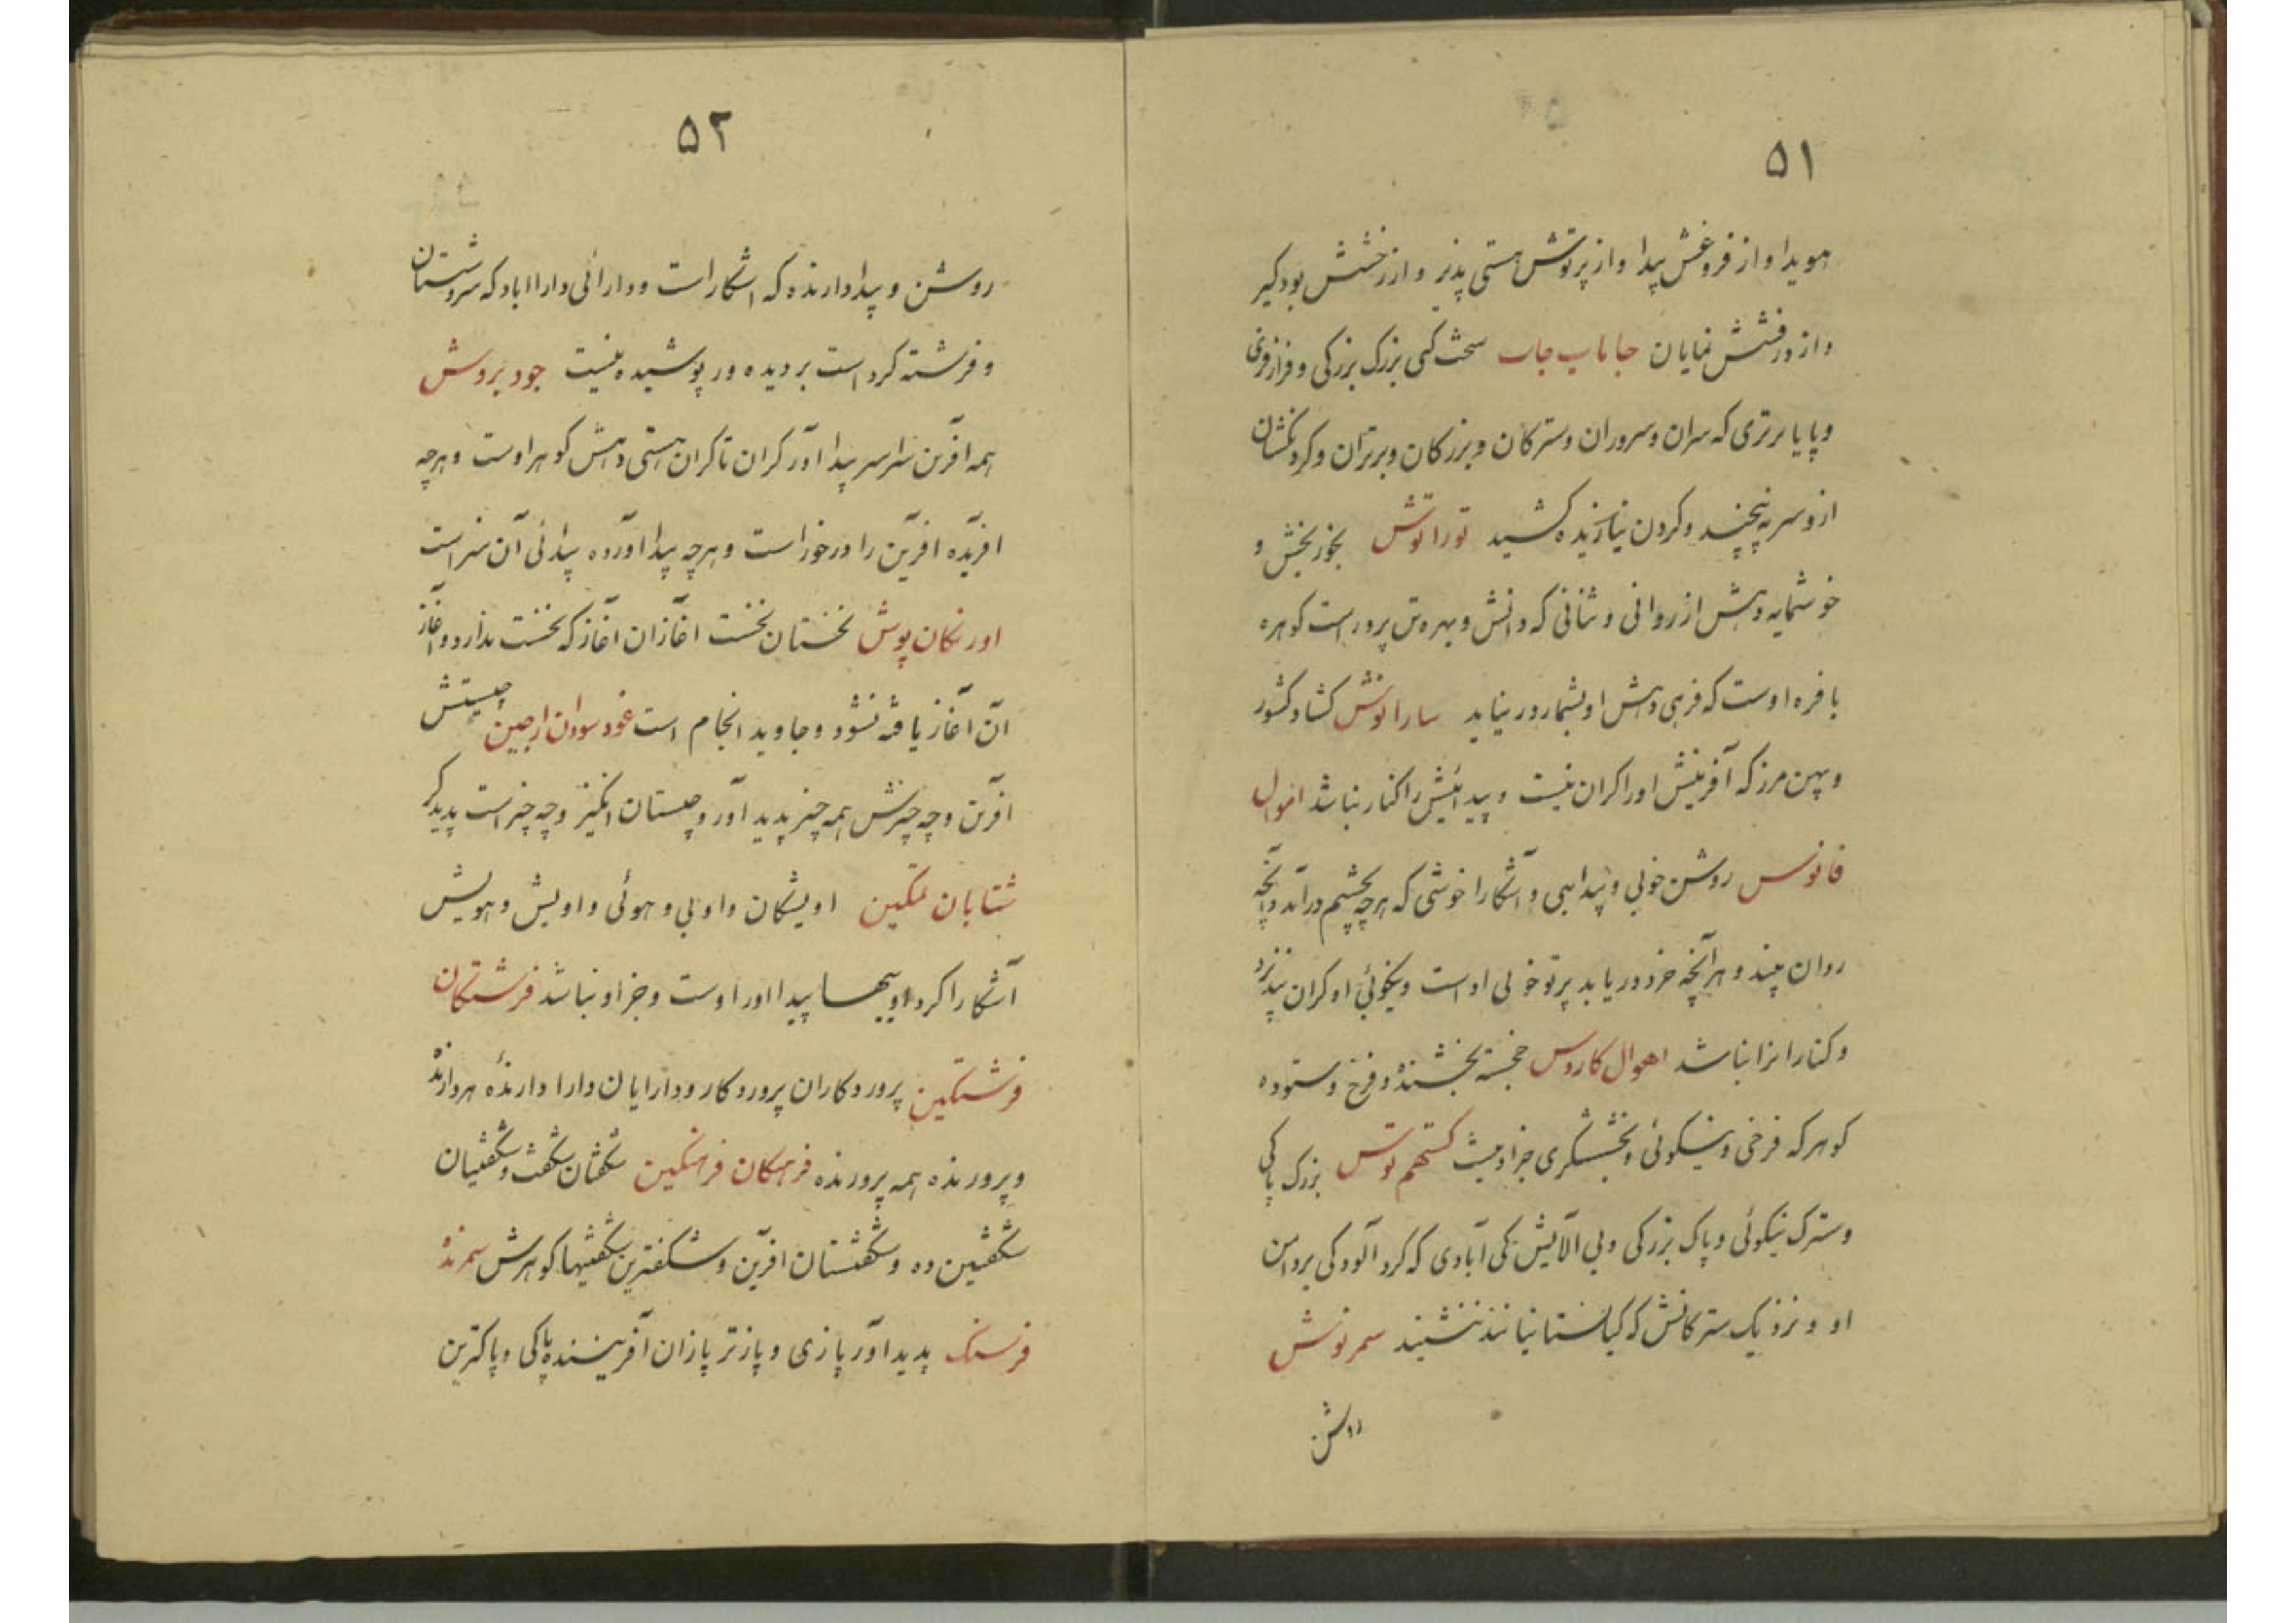 ۵۱
هویدا و از فروغش پیدا و از پرتوش هستی پذیر و از رخشش بودگیر
و از درفشش نمایان جاماب جاب سخت کسی بزرگ بزرگی و فراز فرازی
و پایا برتری که سران و سروران و سترکان و بزرکان و برتران و کردنکشان
ازو سر نپیچند و کردن نیازنده کشید توراتوش بخور بخش و
خوشمایه دهش از روانی و تنانی که دانش و بهره تن پرور است کوهره
بافره اوست که فرهی دهش او بشمار در نیاید ساراتوش کشاد کشور
و پهن مرز که آفرینش او را کران نیست و پیدائیش را کنار نباشد انوال
فانوس روشن خوبی و پیدا بهی و آشکارا خوشی که هرچه بچشم درآید و آنچه
روان بیند و هر آنچه خرد دریابد پرتو خوبی اوست و نیکوئی او کران نپذیرد
و کنار را سزا نباشد اهوال کاروس خجسته بخشندهٔ و فرخ و ستوده
کوهر که فرخی و نیکوئی و بخششگری جز او نیست کستهم توش بزرک پاکی
و سترک نیکوئی و پاک بزرکی و بی آلایش کی آبادی که کرد آلودکی بر دامن
او و نزدیک سترکانش که کیانستانیانند ننشیند سمرنوش
روش
۵۲
روشن و پیدا دارنده که اشکار است و دارائی دارا اباد که سروشستان
و فرشته کرد است بر دیده ور پوشیده نیست جود بروش
همه افرین سراسر پیدا آور کران تا کران هستی دهش کوهر اوست و هرچه
افریده افرین را در خور است و هرچه پیدا آورده پیدائی آن سزاست
اورنکان پوش نخستان نخست اغازان آغاز که نخست ندارد و آغاز
ان آغاز یافته نشود و جاوید انجام است غود سودان ارجین چیستش
افرین و چه چیزش همه چیز پدید آور و چیستان انکیز و چه چیز است پدیدکر
شتابان تمکین اویشکان و اوبی و هوئی و اویش و هویش
آشکارا کرد اوییها پیدا اور اوست و جز او نباشد فرشتکان
فرشتکین پروردکاران پروردکار و دارایان دارا دارندهٔ هر دارنده
و پرورنده همه پرورنده فرهنکان فرهنکین شکفتان شکفت و شکفتیان
شکفتین ده و شکفتستان افرین و شکفترین شکفتیها کوهرش سمرند
فرسنک پدید آور پازی و پازتر پازان آفریننده پاکی و پاکترین